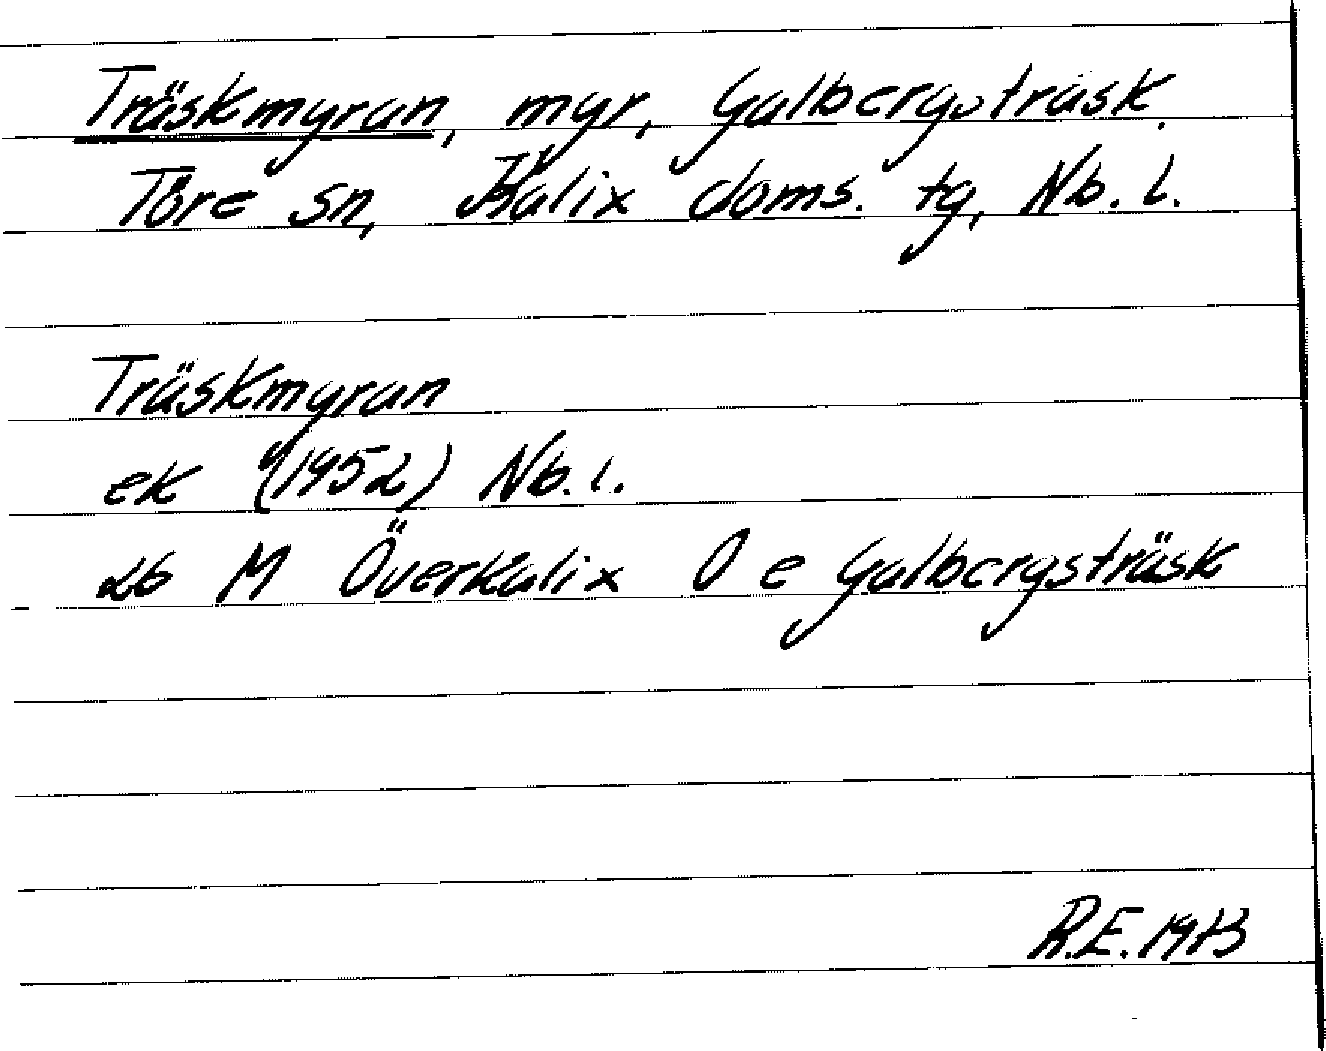 Träskmyran, myr, Galbergsträsk,
Töre sn, Kalix doms. tg, Nb. l.
Träskmyran
ek (1952) Nb. l.
26 M Överkalix O e Galbergsträsk
R.E. 1973